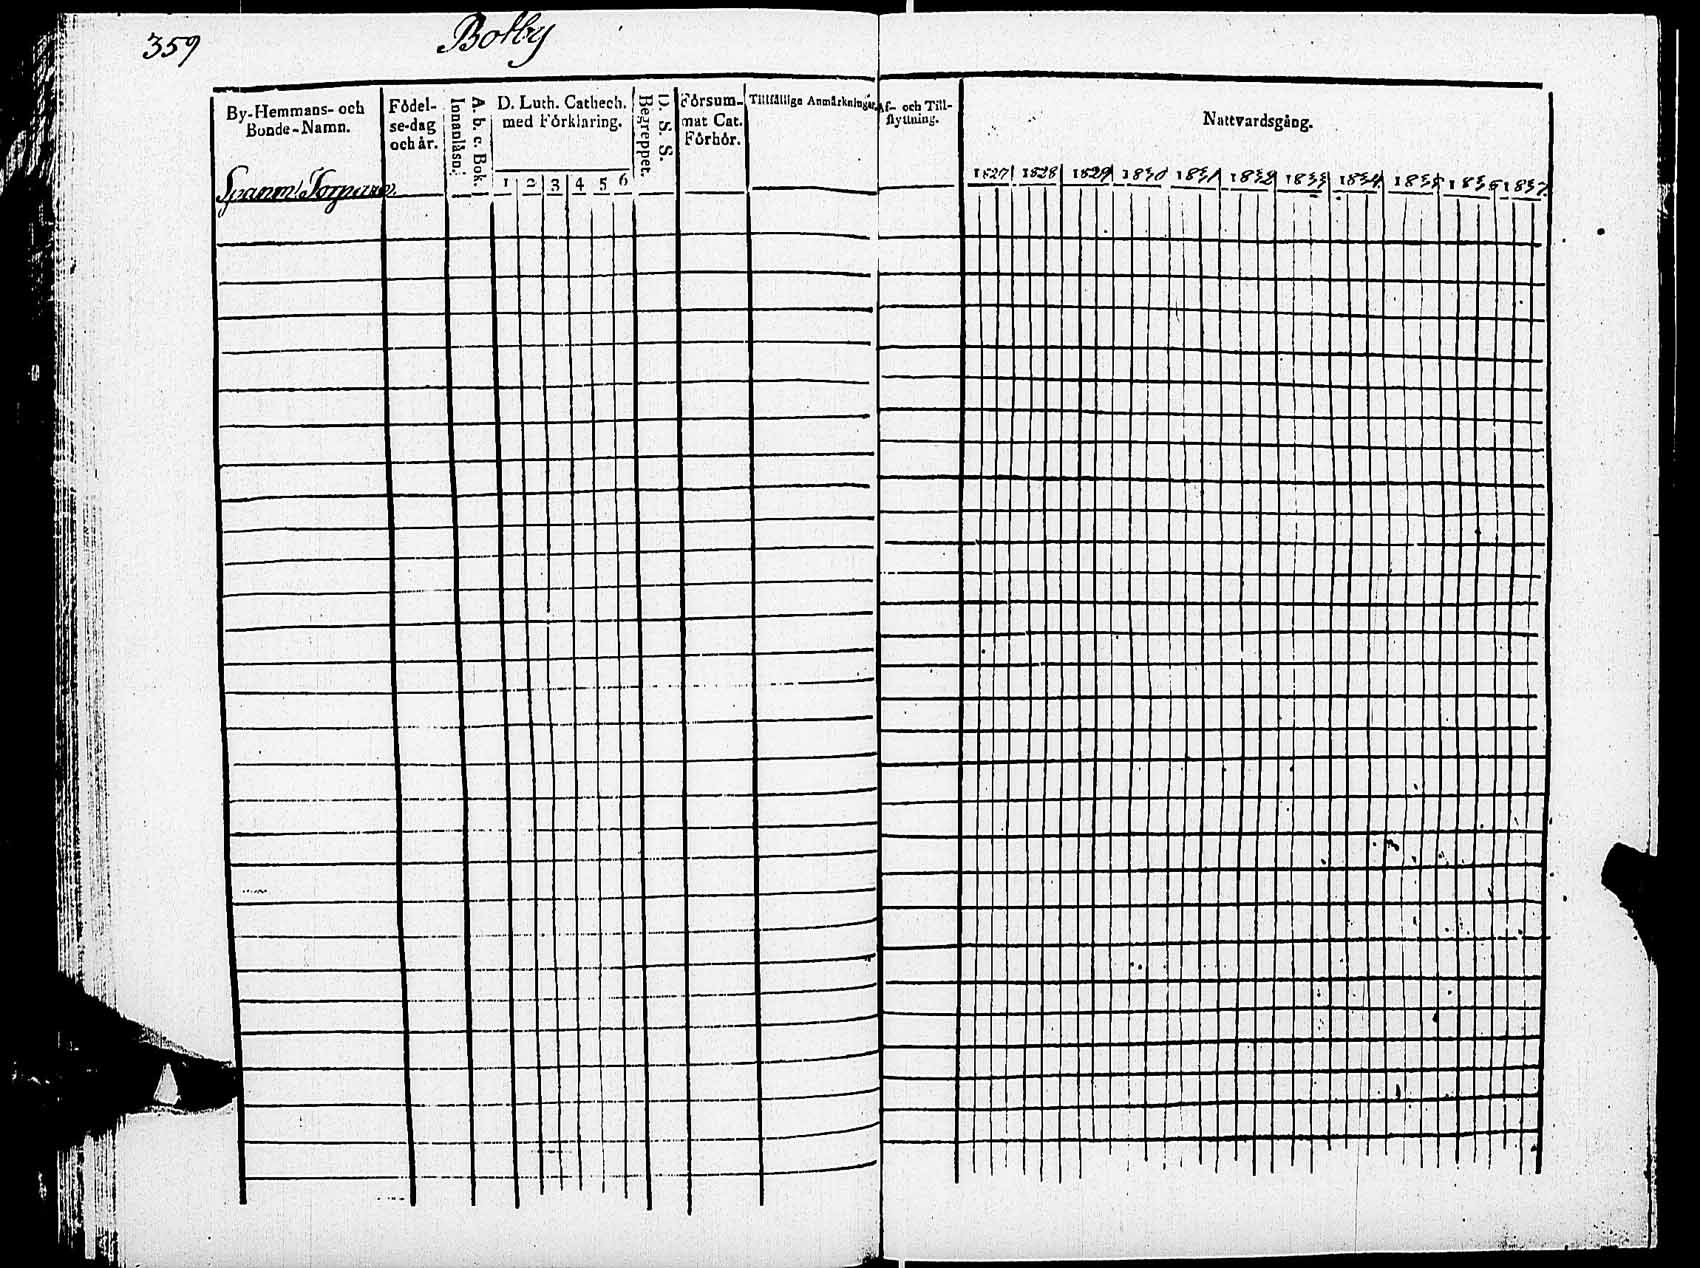 359
Botby
By-Hemmans- och
Bonde-Namn.
Födel-
se-dag
och år.
Innanläsn.
A. b. c. Bok.
D. Luth. Cathech.
med Förklaring.
1 2 3 4 5 6
Begreppet.
D. S. S.
Försum-
mat Cat.
Förhör.
Tillfällige Anmärkningar.
Af- och Till-
flyttning.
Nattvardsgång.
1827 1828 1829 1830 1831 1832 1833 1834 1835 1836 1837